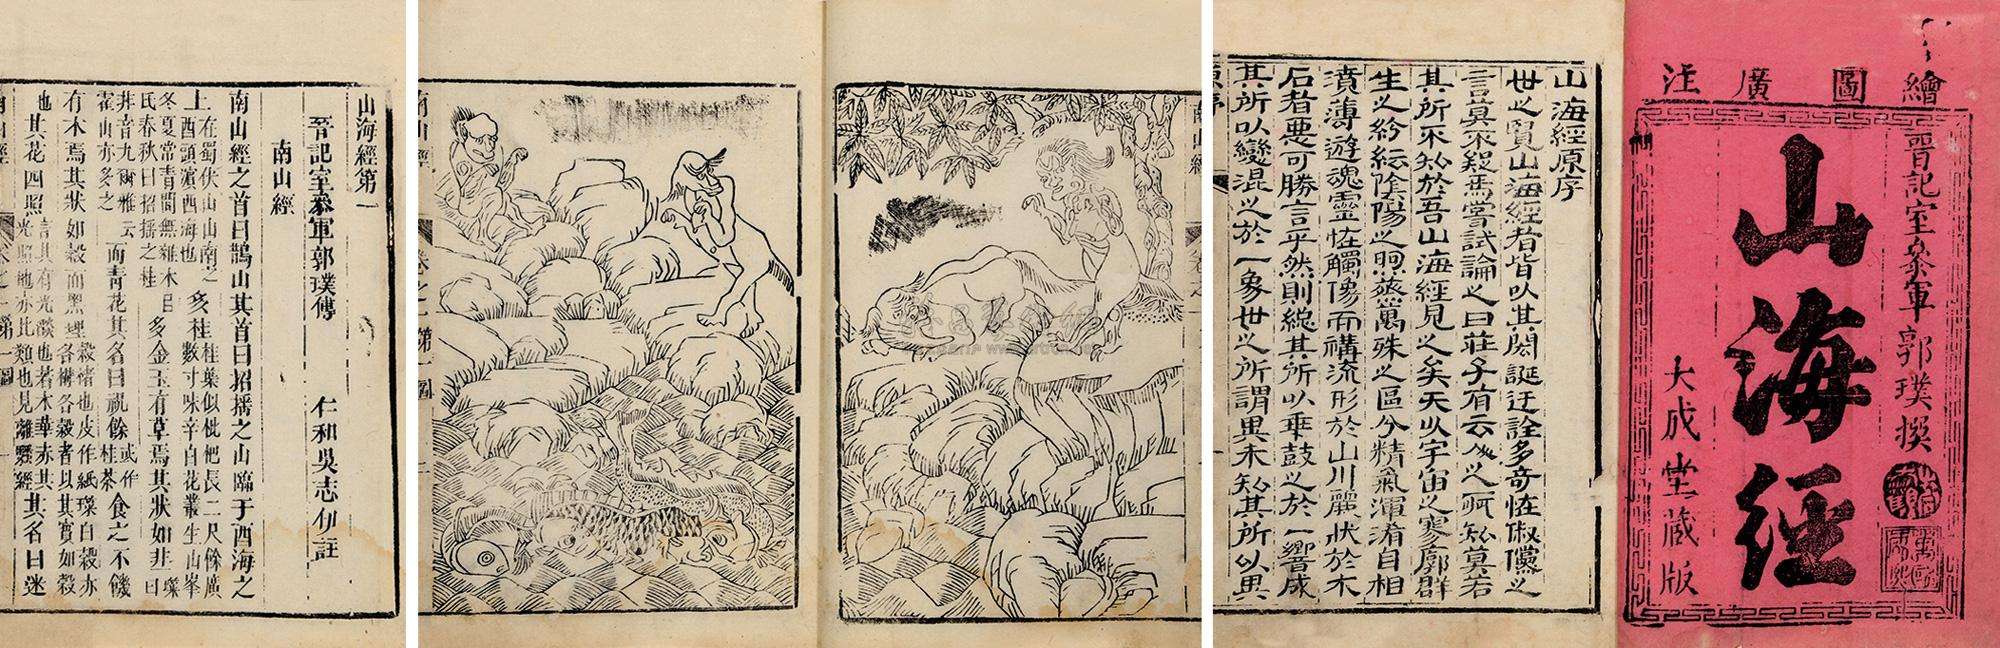 繪圖廣注
晉記室參軍郭璞撰
山海經
大成堂藏版
山海經原序
世之覽山海經者皆以其閎誕迂誇多奇怪俶儻之
言莫不疑焉嘗試論之曰莊子有云人之所知莫若
其所不知於吾山海經見之矣夫以宇宙之寥廓群
生之紛紜陰陽之煦蒸萬殊之區分精氣渾淆自相
濆薄遊魂靈怪觸像而構流形於山川麗狀於木
石者惡可勝言乎然則總其所以乖鼓之於一響成
其所以變混之於一象世之所謂異未知其所以異
南山經
卷之一
第一圖
山海經第一
晉記室參軍郭璞傳 仁和吳志伊註
南山經
南山經之首曰鵲山其首曰招搖之山臨于西海之
上在蜀伏山山南之西頭濱西海也多桂桂葉似枇杷長二尺餘廣數寸味辛白花叢生山峯
冬夏常青間無雜木呂氏春秋曰招搖之桂多金玉有草焉其狀如韭璨曰
韭音九爾雅云霍山亦多之而青花其名曰祝餘或作桂荼食之不饑
有木焉其狀如榖而黑理榖楮也皮作紙璨曰榖亦名構名榖者以其實如榖
也其花四照言其有光燄也若木華赤其光照地亦此類也見離騷經其名曰迷